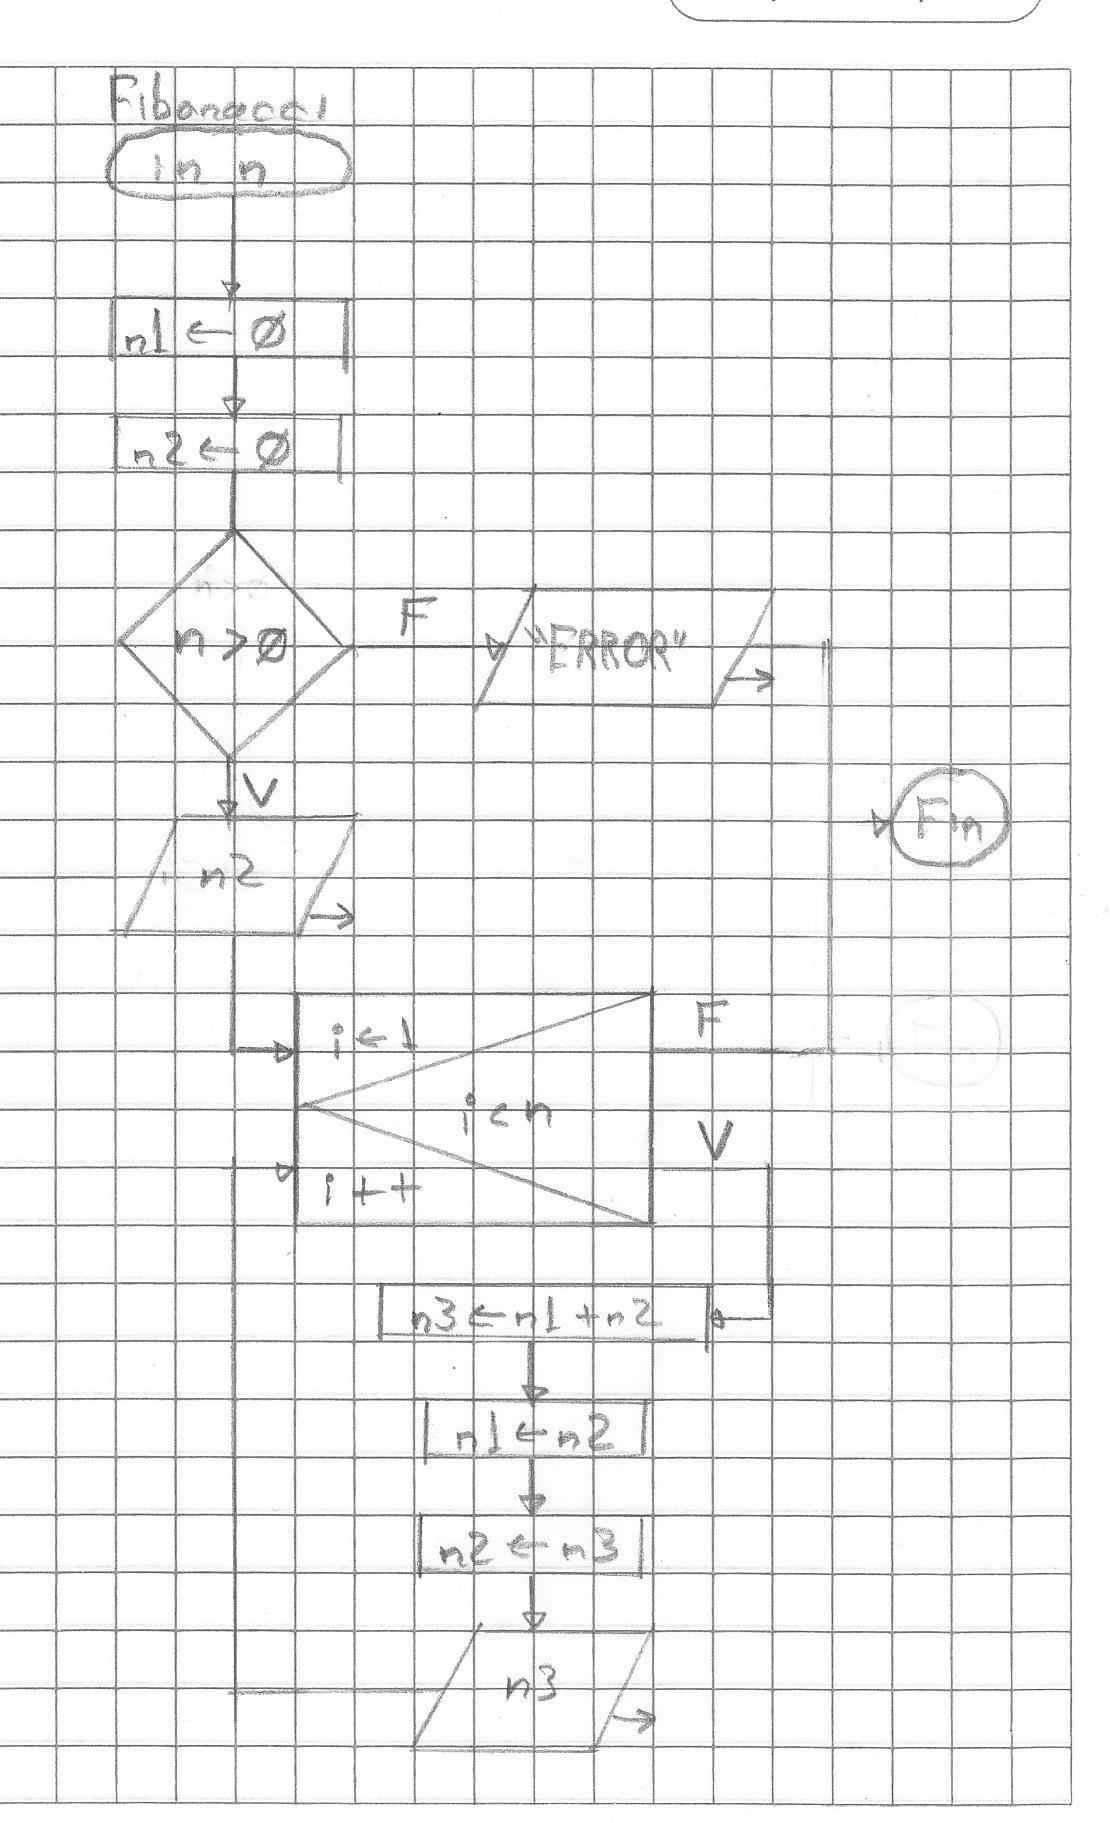 Fibonacci
in n
n1 ← Ø
n2 ← Ø
n > Ø
F
"ERROR"
V
Fin
n2
i ← 1
F
i < n
V
i++
n3 ← n1 + n2
n1 ← n2
n2 ← n3
n3